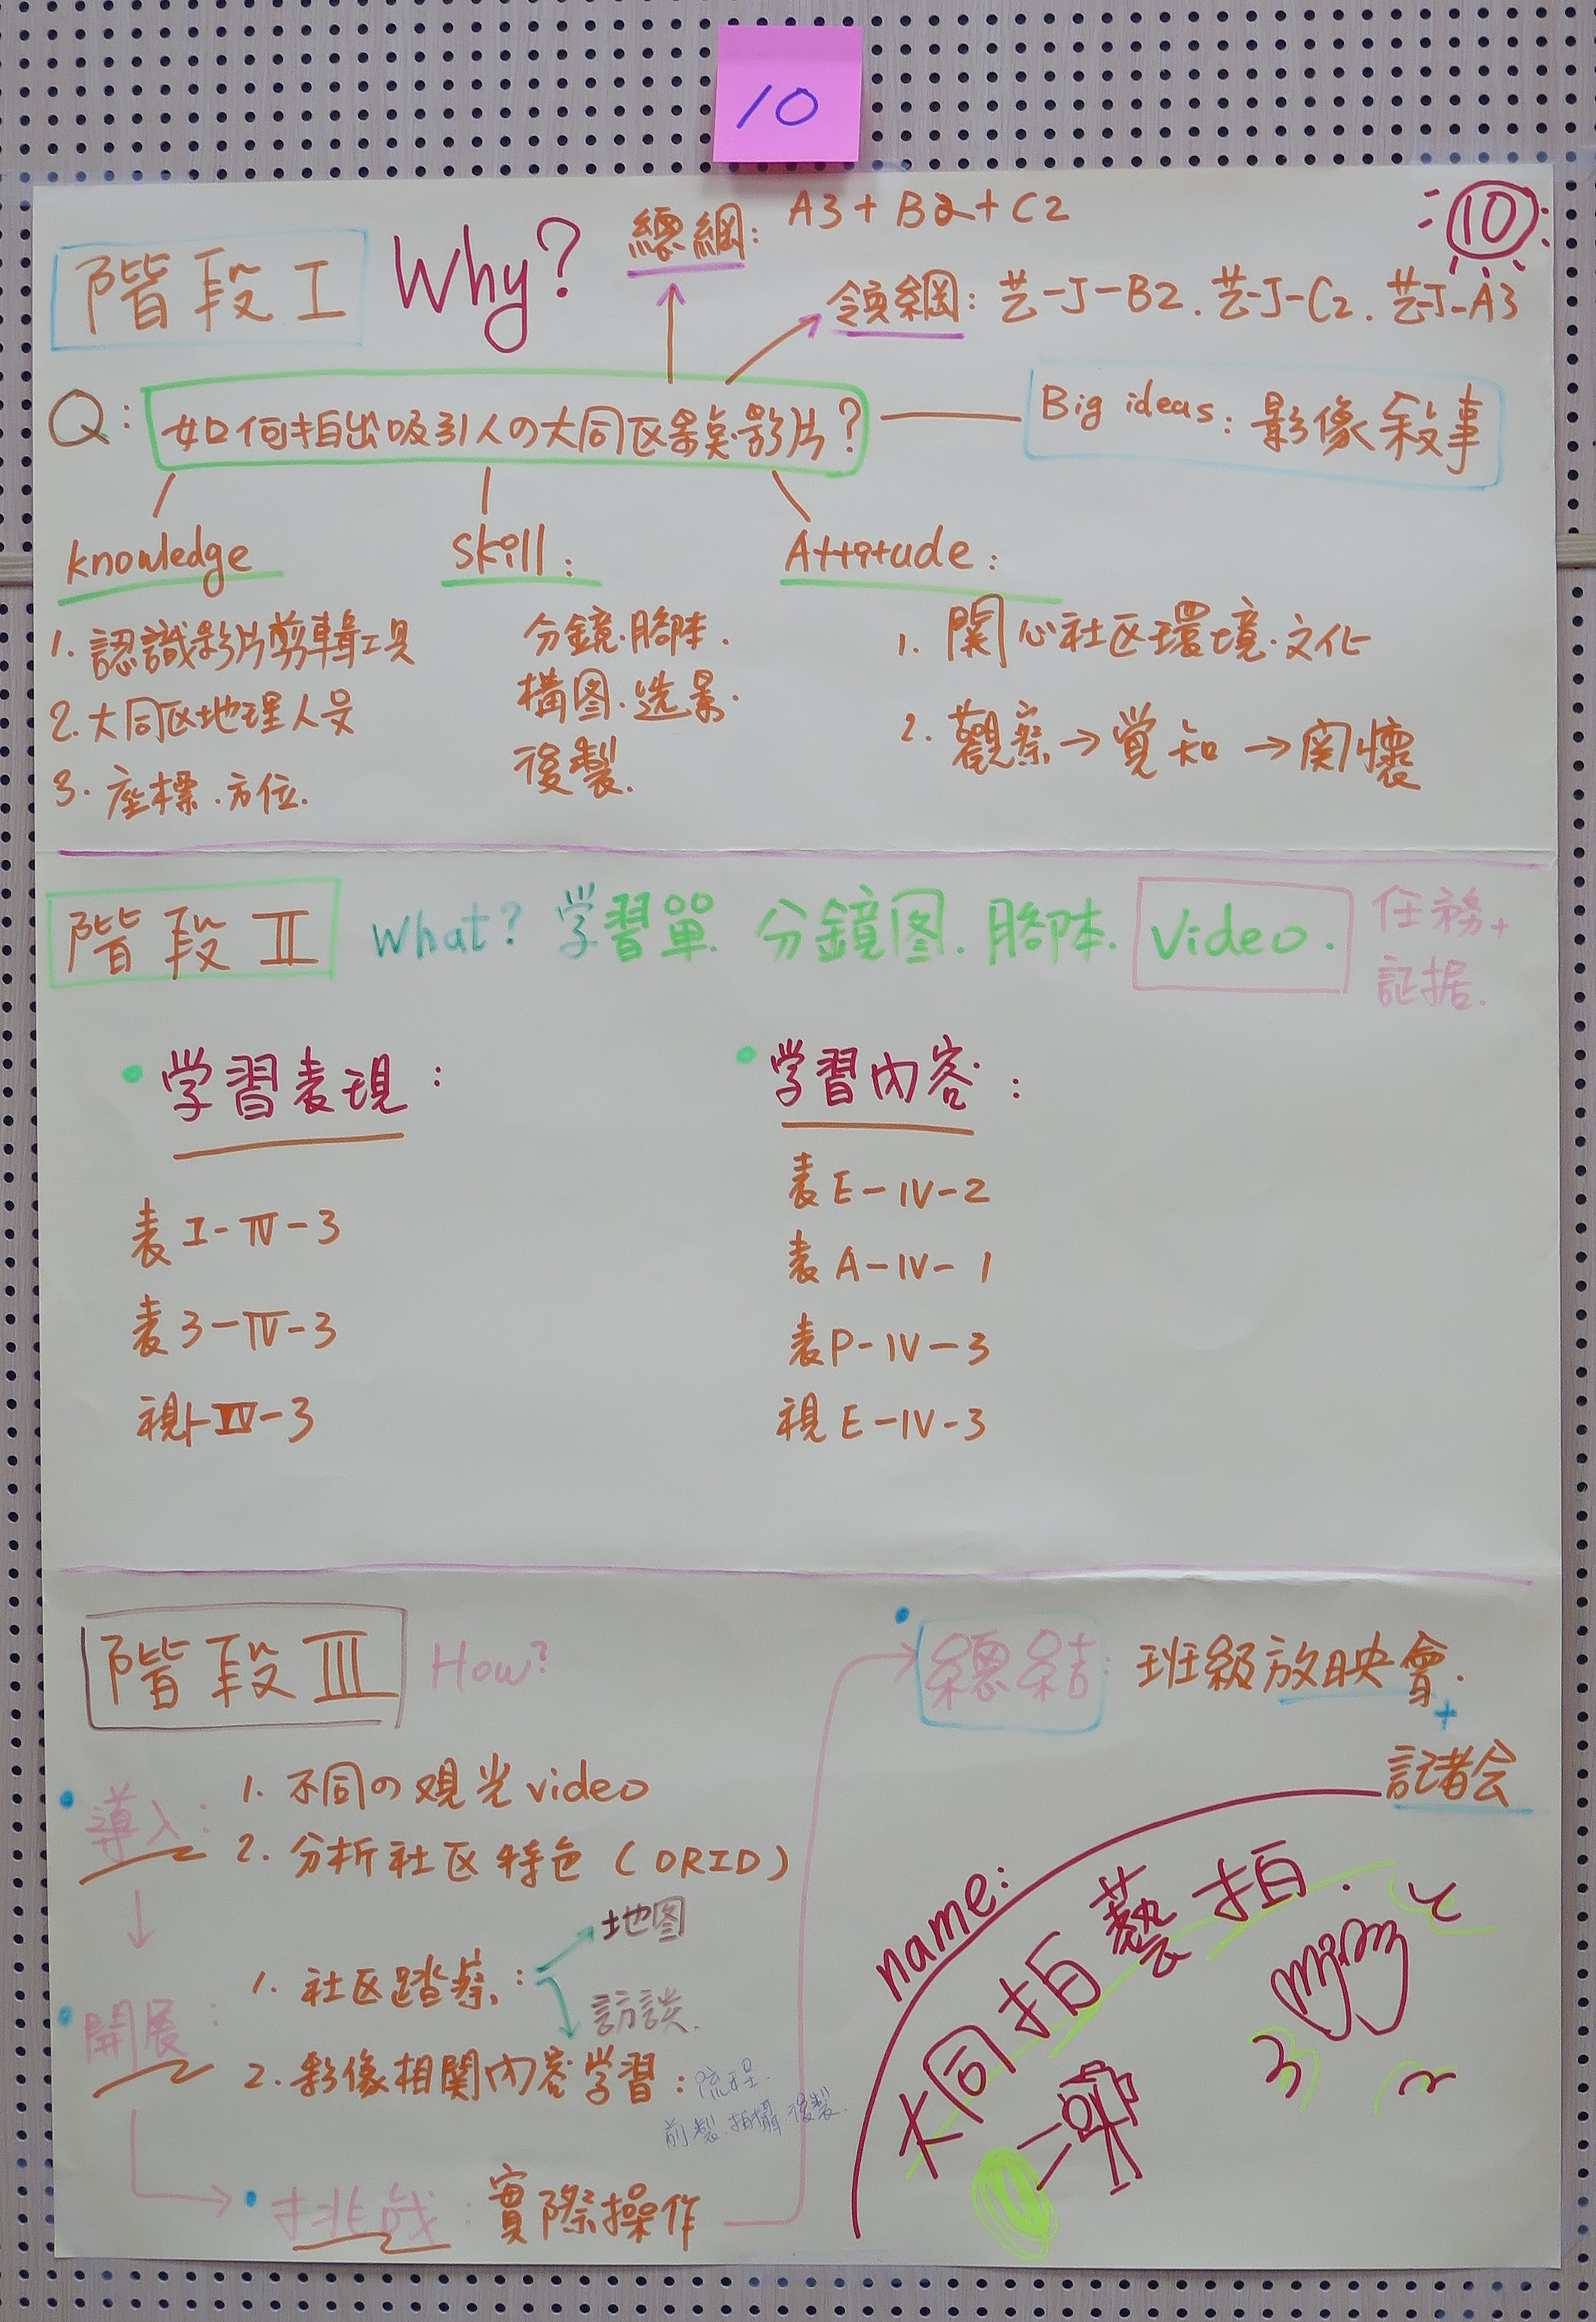 10
階段 I Why? 總綱: A3+B2+C2
10
領綱: 芸-J-B2. 芸-J-C2. 芸-J-A3
Q: 如何拍出吸引人の大同区景點影片?
Big ideas: 影像敘事
knowledge
1. 認識影片剪輯工具
2. 大同区地理人文
3. 座標.方位.
skill:
分鏡.腳本.
構图.选景.
後製.
Attitude:
1. 関心社区環境.文化
2. 觀察→覚知→関懷
階段 II What? 学習單. 分鏡图. 腳本. Video. 任務+
証据.
学習表現:
表 I-IV-3
表 3-IV-3
視1-IV-3
学習內容:
表 E-IV-2
表 A-IV-1
表 P-IV-3
視 E-IV-3
階段 III How?
導入:
1. 不同の观光video
2. 分析社区特色(ORID)
開展:
1. 社区踏察: 地图
訪談.
2. 影像相関內容学習: 流程.
前製.拍攝.後製.
挑战: 實際操作
總結: 班級放映會.
+
記者会
name:
大同拍藝拍.